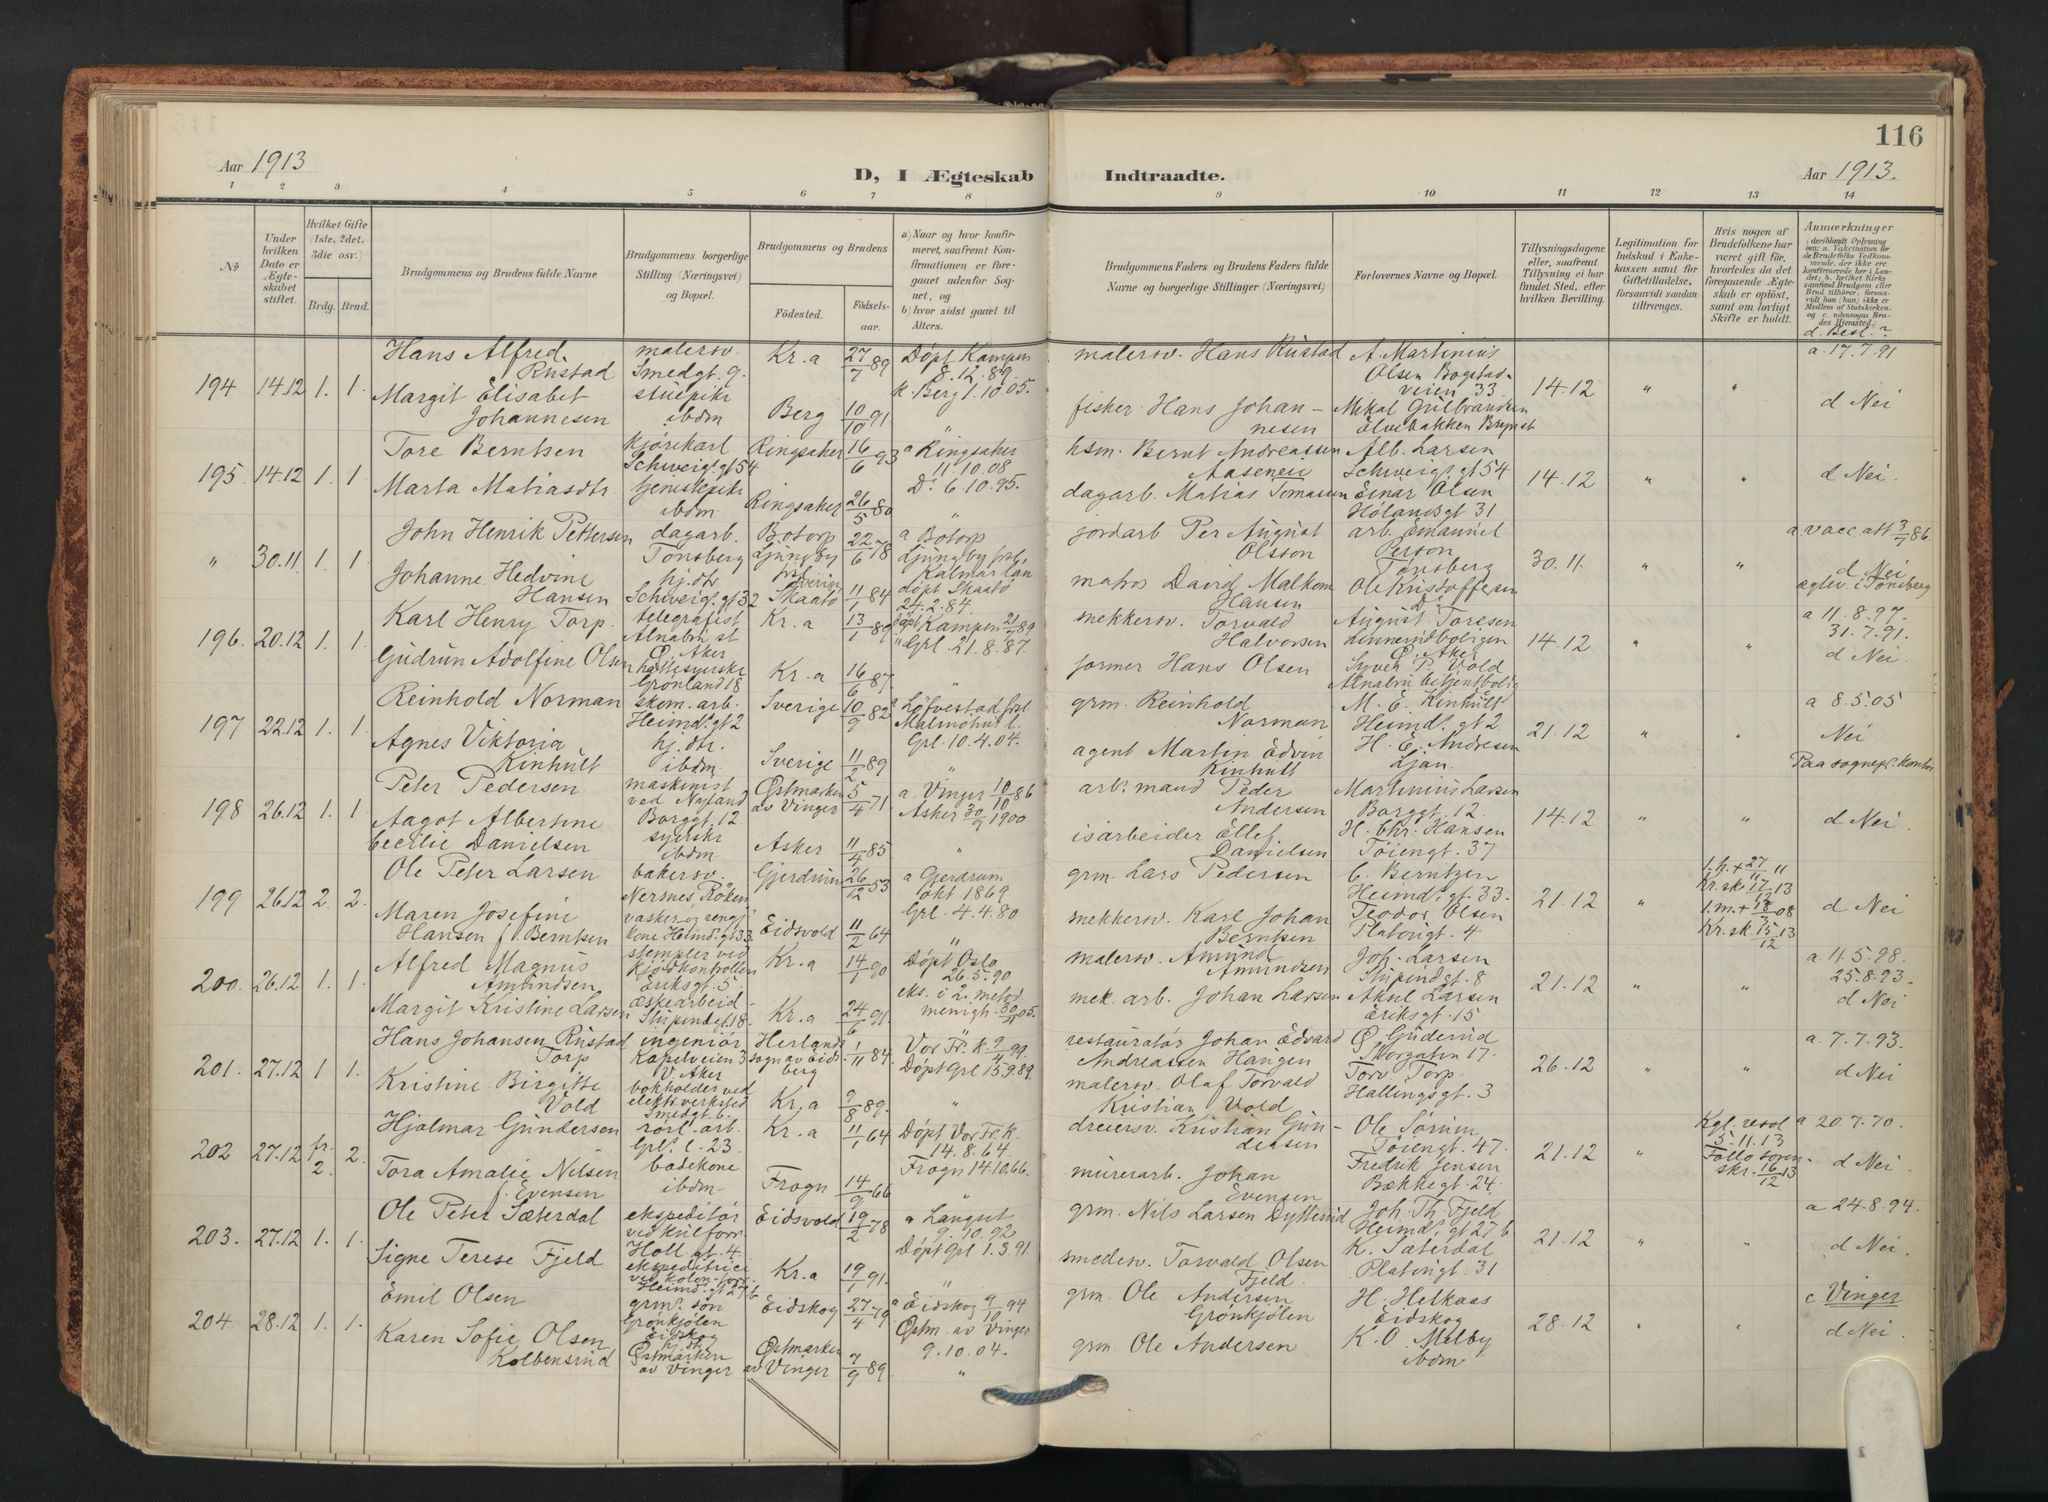 116
Aar 1913
D, I Ægteskab Indtraadte.
Aar 1913.
1 2 3 4 5 6 7 8 9 10 11 12 13 14
№
Under hvilken Dato er Ægteskabet stiftet.
Hvilket Gifte (1ste, 2det, 3die osv.)
Brdg. Brud.
Brudgommens og Brudens fulde Navne
Brudgommens borgerlige Stilling (Næringsvei) og Bopæl.
Brudgommens og Brudens
Fødested.
Fødselsaar.
a) Naar og hvor konfirmeret, saafremt Konfirmationen er foregaaet udenfor Sognet, og
b) hvor sidst gaaet til Alters.
Brudgommens Faders og Brudens Faders fulde Navne og borgerlige Stillinger (Næringsvei)
Forlovernes Navne og Bopæl.
Tillysningsdagene eller, saafremt Tillysning ei har fundet Sted, efter hvilken Bevilling.
Legitimation for Indskud i Enkekassen samt for Giftetilladelse, forsaavidt saadan tiltrænges.
Hvis nogen af Brudefolkene har været gift før, hvorledes da det foregaaende Ægteskab er opløst, samt om lovligt Skifte er holdt.
Anmærkninger
194 14.12 1. 1.
Hans Alfred Rustad
malersv. Smedgt. 9.
Kr.a 27/7 89
Døpt Kampen 8.12.89.
k. Berg 1.10.05.
malersv. Hans Rustad
A. Martinius Olsen Bogstadveien 33
14.12 " "
a. 17.7.91
d Nei
Margit Elisabet Johannesen
stuepike ibdm
Berg 10/10 91 "
fisker Hans Johannesen
Mikal Gulbrandsen Elvebakken
195 14.12 1. 1
Tore Berntsen
kjørekarl Schweigs. gt 54
Ringsaker 16/6 93
a Ringsaker 11.10.08
D. 6.10.95.
hsm. Bernt Andreassen
Alb. Larsen Schweigs. gt 54
14.12 " "
d Nei.
Marta Matiasdtr
tjenestepike ibdm
Ringsaker 26/5 80 "
dagarb. Matias Tomasen
Einar Olsen Hølandsgt 31
" 30.11. 1. 1
John Henrik Pettersen
dagarb. Tønsberg
Botorp Ljungby Sverige
22/6 78
a Botorp Ljungby Kalmar län
døpt Skaatø 24.2.84.
jordarb Per August Olsson
arb. Emanuel Person Tønsberg
30.11. " "
a. vacc. att 3/7 86.
d. Nei
Johanne Hedvine Hansen
hj. dtr. Schweigs. gt 32
Skaatø 11/1 84
matros David Malkom Hansen
Ole Kristoffersen
196. 20.12 1. 1.
Karl Henry Torp.
telegrafist Alnabru st Ø. Aker
Kr.a 13/1 89
døpt Kampen 21/9 89
" Grl. 21.8.87.
snekkersv. Torvald Halvorsen
August Toresen Ø. Aker
14.12 " "
a 11.8.97.
31.7.91.
d Nei
Gudrun Adolfine Olsen
Grønland 18
Kr.a 16/6 87. "
former Hans Olsen
Syver P. Vold
197 22.12 1. 1
Reinhold Norman
skom. arb. Heimd. gt 2
Sverige 10/9 82
Malmøhus l.
Grl. 10.4.04.
grm. Reinhold Norman
M. E. Kinhult Heimd. gt 2.
21.12 " "
a 8.5.05
Nei
Agnes Viktoria Kinhult
hj. dtr. ibdm
Sverige 11/2 89 "
agent Martin Edvin Kinhult
H. E. Andresen Ljan.
Paa sognepr. kontor
198 26.12 1. 1
Peter Pedersen
maskinist ved Nyland Borggt. 12
Østmarken av Vinger
5/4 71
a. Vinger 10/10 86
Asker 30/9 1900
arb. mand Peder Andersen
Martinius Larsen Borggt. 12.
14.12 " "
d Nei.
Aagot Albertine Cecilie Danielsen
syerske ibdm
Asker 11/4 85 "
isarbeider Ellef Danielsen
H. Chr. Hansen Tøiengt. 37
199 26.12 2. 2.
Ole Peter Larsen
bakersv. Nersnes, Røken
Gjerdrum 26/12 53
a Gjerdrum okt 1869
Grl. 4.4.80
grm. Lars Pedersen
C. Berntzen Heimd. gt. 33.
21.12 "
d Nei
Maren Josefine Hansen f. Berntsen
Heimd. gt 33.
Eidsvold 11/2 64 "
snekkersv. Karl Johan Berntsen
Teodor Olsen Platousgt. 4
200. 26.12 1. 1.
Alfred Magnus Amundsen
stempler ved Kjødkontrollen Eriksgt. 5
Kr.a 14/1 90
Døpt Oslo 26.5.90
eks. i 2. metod. menigh. 30/4 05.
malersv. Amund Amundsen
Joh. Larsen Stupendgt. 8
21.12 " "
a 11.5.98.
25.8.93.
d Nei
Margit Kristine Larsen
æskearbeid-
Kr.a 24/6 91.
mek. arb. Johan Larsen
Aksel Larsen Eriksgt. 15
201. 27.12 1 1.
Hans Johansen Rustad Torp
ingeniør Kapelveien 3 V. Aker
Herlands sogn av Eidsberg
1/11 84.
Vor Fr. K. 9/4 99.
Døpt Grl 15.9.89.
restauratør Johan Edvard Andreassen Haugen
Ø. Guderud Storgaten 17.
26.12 " "
a. 7.7.93.
d Nei
Kristine Birgitte Vold
bokholder ved elektr. verksted Smedgt. 6.
Kr.a 9/8 89. "
malersv. Olaf Torvald Kristian Vold
Torv. Torp Hallingsgt. 3
202 27.12 fr. 2. 2.
Hjalmar Gundersen
rørl. arb. Grl. l. 23.
Kr.a 11/1 64
Døpt Vor Fr. K. 14.8.64.
Frogn 14.10.66.
dreiersv. Kristian Gundersen
Ole Sørum Tøiengt. 47.
21.12 "
Kgl. resol 5.11.13
Follo soren-skr. 16/12 13
a 20.7.70.
d Nei
Tora Amalie Nilsen f. Evensen
badekone ibdm
Frogn 14/9 66 "
murerarb. Johan Evensen
Fredrik Jensen Bækkegt. 24.
203. 27.12 1. 1.
Ole Peter Sæterdal
ekspeditør Holl gt. 4.
Eidsvold 19/2 78
a Langset 9.10.92
Døpt Grl 1.3.91.
grm. Nils Larsen Dytterud
Joh. Th. Fjeld Heimd. gt 27 b
21.12 " "
a 24.8.94.
d Nei.
Signe Terese Fjeld
ekspeditrice Heimd. gt 27 b
Kr.a 19/1 91. "
smedesv. Torvald Olsen Fjeld.
K. Sæterdal Platousgt. 31
204. 28.12 1. 1.
Emil Olsen
grm. søn Grønkjølen Eidskog
Eidskog 27/4 79
a Eidskog 9/10 94
Østm. av Vinger 9.10.04.
grm. Ole Andersen Grønkjølen
H. Helkaas Eidskog
28.12 " "
c Vinger
d Nei
Karen Sofie Olsen Kolbensrud
hj. dtr. Østmarken av Vinger
Østmarken av Vinger
7/9 89 "
grm. Ole Andersen
K. O. Melby ibdm